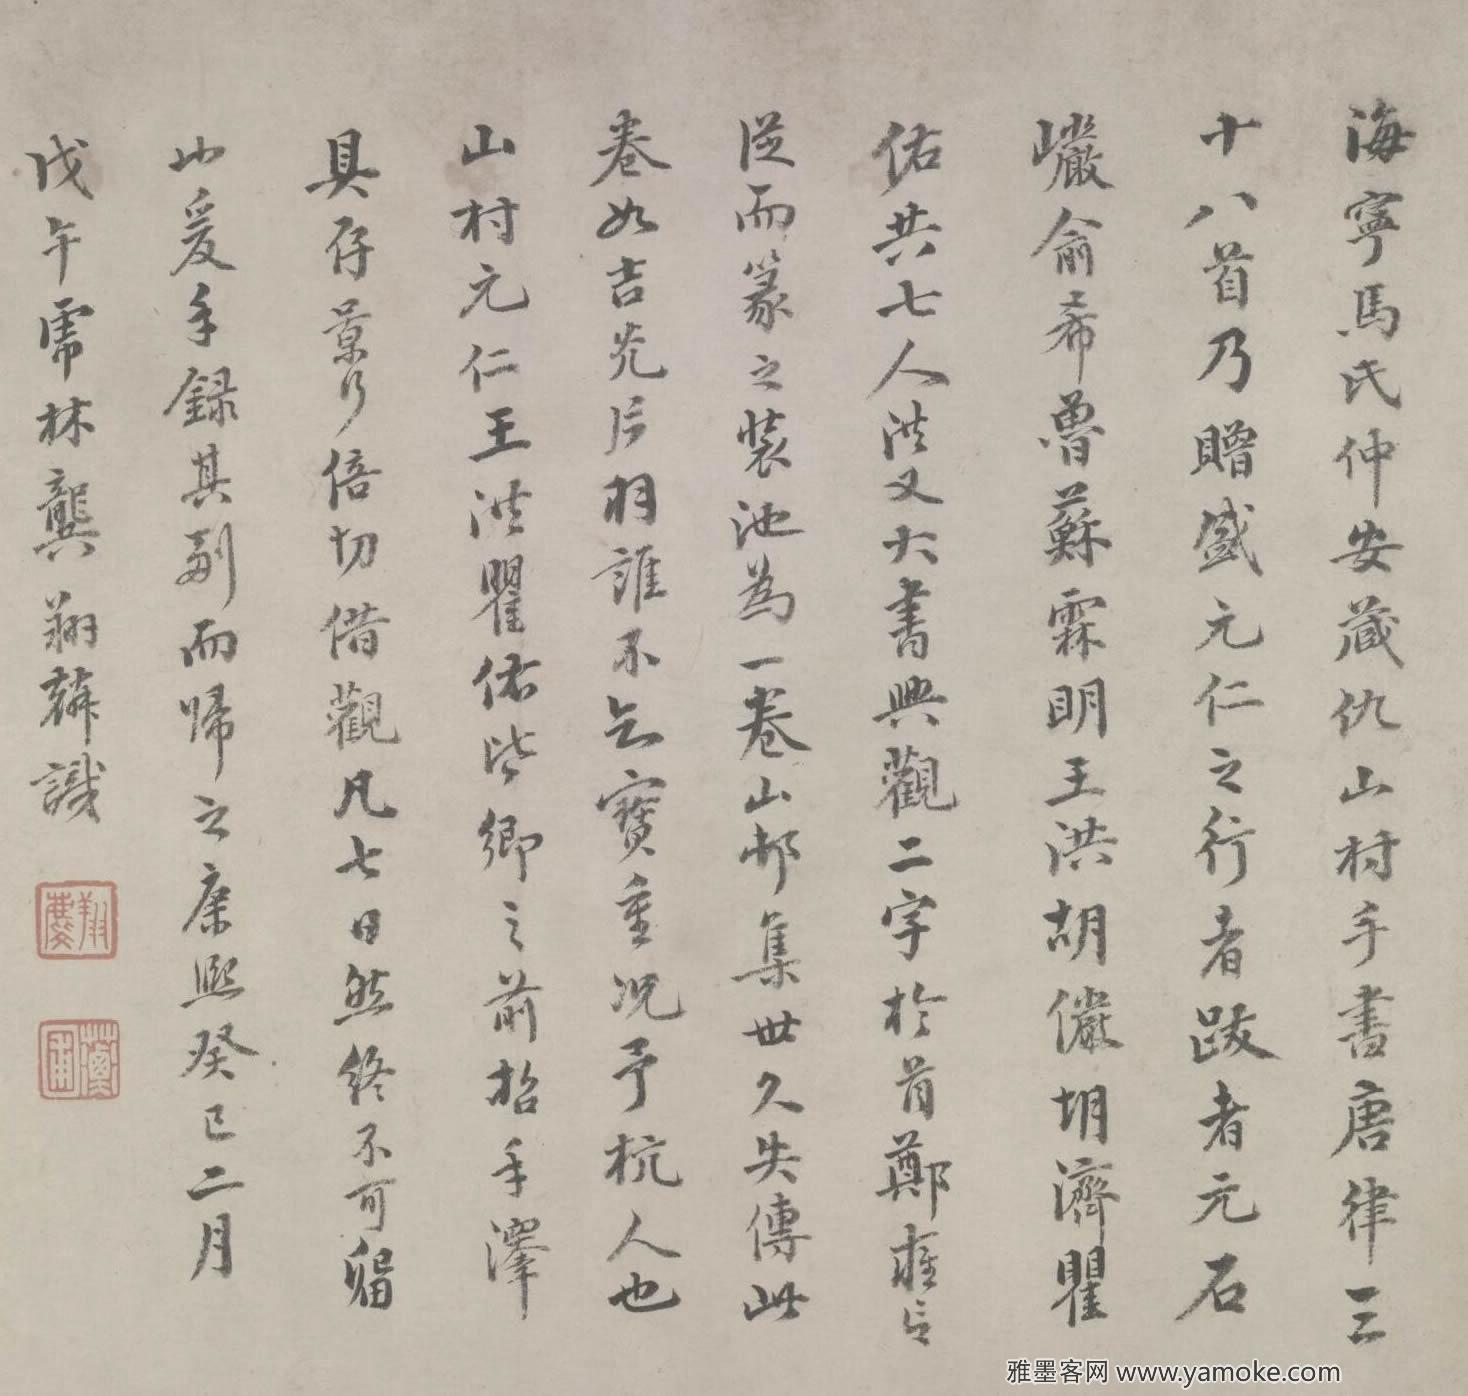 海寧馬氏仲安藏仇山村手書唐律三
十八首乃贈盛元仁之行者跋者元石
巖俞希魯蘇霖明王洪胡儼胡濟瞿
佑共七人洪又大書興觀二字於首鄭雍言
從而篆之裝池為一卷山邨集世久失傳此
卷如吉光片羽誰不知寶重況予杭人也
山村元仁王洪瞿佑皆鄉之前招手澤
具存景行倍切借觀凡七日然終不可留
也爰手錄其副而歸之康熙癸巳二月
戊午雨林龔翔麟識
雅墨客网 www.yamoke.com